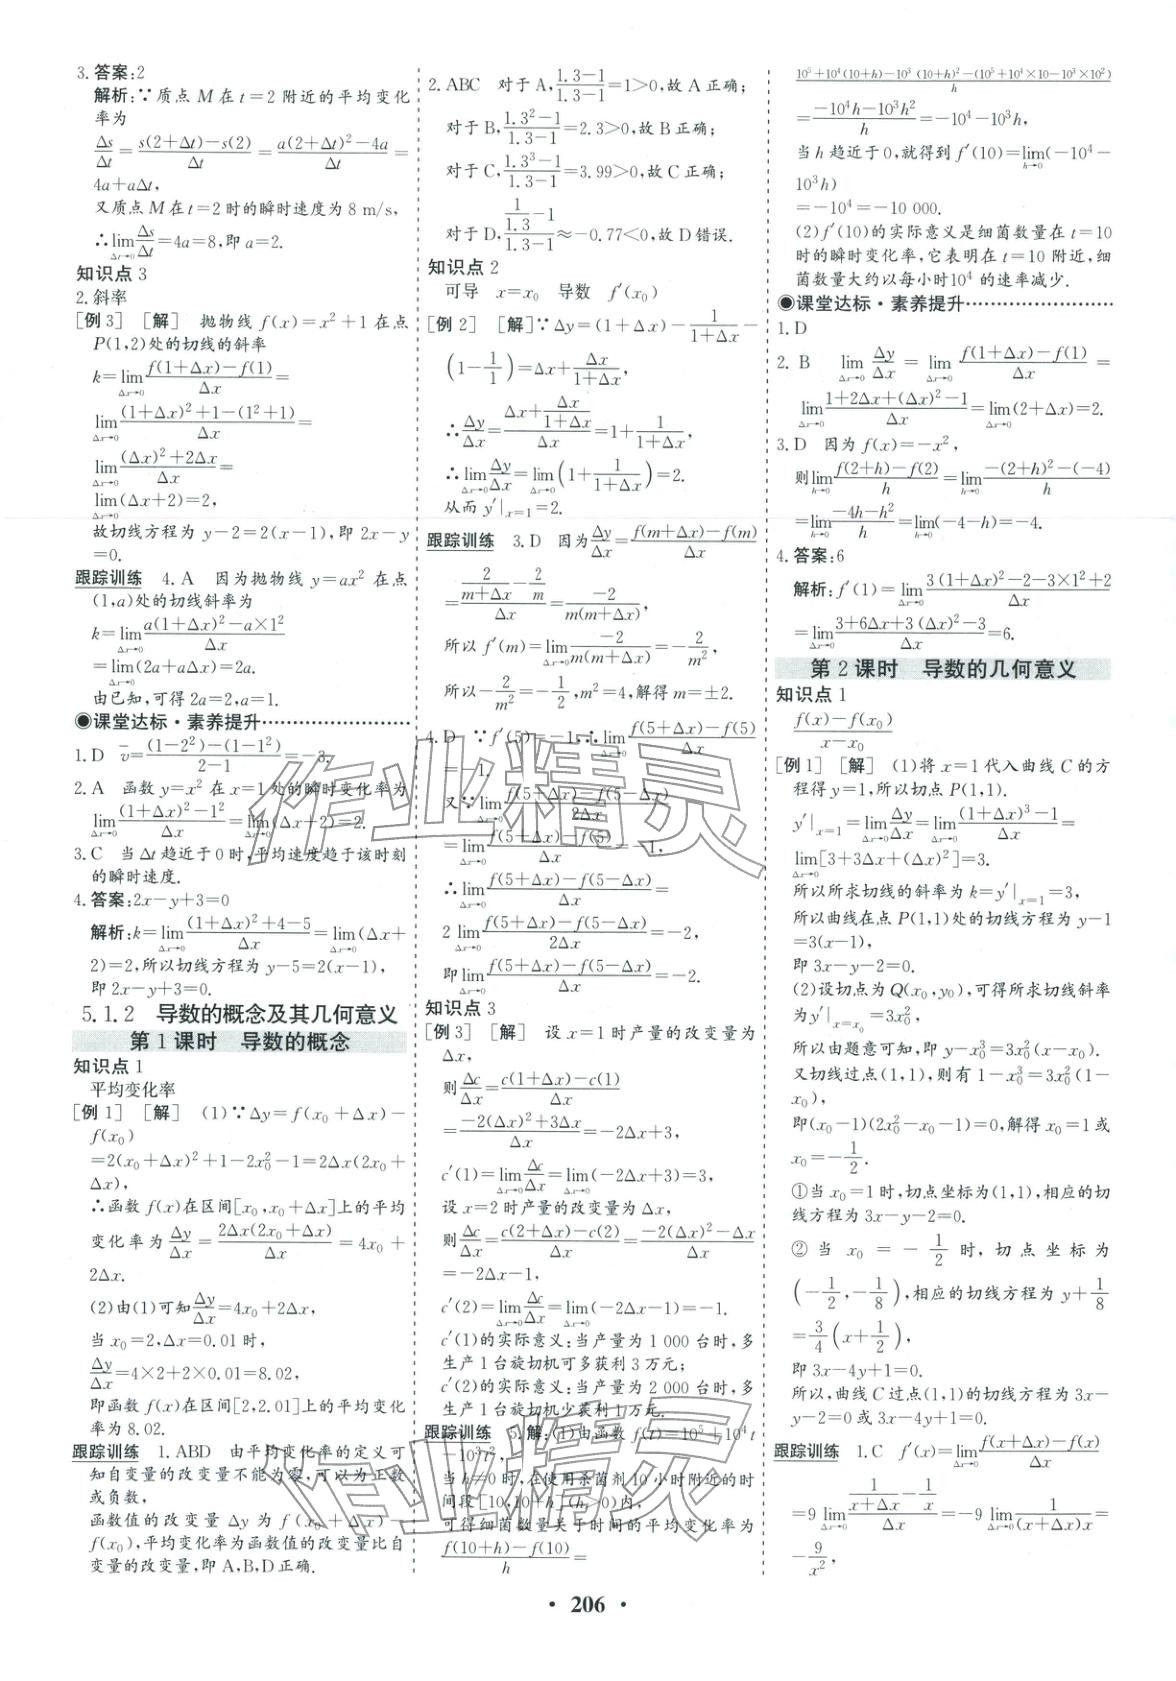 3. 答案:2
解析:∵质点 M 在 t=2 附近的平均变化
率为
Δs/Δt=(s(2+Δt)-s(2))/Δt=(a(2+Δt)²-4a)/Δt=
4a+aΔt,
又质点 M 在 t=2 时的瞬时速度为 8 m/s,
∴lim(Δt→0) Δs/Δt=4a=8,即 a=2.
知识点 3
2. 斜率
[例 3] [解] 抛物线 f(x)=x²+1 在点
P(1,2)处的切线的斜率
k=lim(Δx→0) (f(1+Δx)-f(1))/Δx=
lim(Δx→0) ((1+Δx)²+1-(1²+1))/Δx=
lim(Δx→0) ((Δx)²+2Δx)/Δx=
lim(Δx→0)(Δx+2)=2,
故切线方程为 y-2=2(x-1),即 2x-y
=0.
跟踪训练 4. A 因为抛物线 y=ax² 在点
(1,a)处的切线斜率为
k=lim(Δx→0) (a(1+Δx)²-a×1²)/Δx
=lim(Δx→0)(2a+aΔx)=2a.
由已知,可得 2a=2,a=1.
◉课堂达标·素养提升
1. D v̄=((1-2²)-(1-1²))/(2-1)=-3.
2. A 函数 y=x² 在 x=1 处的瞬时变化率为
lim(Δx→0) ((1+Δx)²-1²)/Δx=lim(Δx→0)(Δx+2)=2.
3. C 当 Δt 趋近于 0 时,平均速度趋于该时刻
的瞬时速度.
4. 答案:2x-y+3=0
解析:k=lim(Δx→0) ((1+Δx)²+4-5)/Δx=lim(Δx→0)(Δx+
2)=2,所以切线方程为 y-5=2(x-1),
即 2x-y+3=0.
5.1.2 导数的概念及其几何意义
第 1 课时 导数的概念
知识点 1
平均变化率
[例 1] [解] (1)∵Δy=f(x₀+Δx)-
f(x₀)
=2(x₀+Δx)²+1-2x₀²-1=2Δx(2x₀+
Δx),
∴函数 f(x)在区间[x₀,x₀+Δx]上的平均
变化率为 Δy/Δx=2Δx(2x₀+Δx)/Δx=4x₀+
2Δx.
(2)由(1)可知Δy/Δx=4x₀+2Δx,
当 x₀=2,Δx=0.01 时,
Δy/Δx=4×2+2×0.01=8.02,
即函数 f(x)在区间[2,2.01]上的平均变化
率为8.02.
跟踪训练 1. ABD 由平均变化率的定义可
知自变量的改变量不能为零,可以为正数
或负数,
函数值的改变量 Δy 为 f(x₀+Δx)-
f(x₀),平均变化率为函数值的改变量比自
变量的改变量,即 A,B,D正确.
2. ABC 对于 A,(1.3-1)/(1.3-1)=1>0,故 A 正确;
对于 B,(1.3²-1)/(1.3-1)=2.3>0,故 B 正确;
对于 C,(1.3³-1)/(1.3-1)=3.99>0,故 C 正确;
对于 D,(1/1.3-1)/(1.3-1)≈-0.77<0,故 D 错误.
知识点 2
可导 x=x₀ 导数 f′(x₀)
[例 2] [解]∵Δy=(1+Δx)-1/(1+Δx)-
(1-1/1)=Δx+Δx/(1+Δx),
∴Δy/Δx=(Δx+Δx/(1+Δx))/Δx=1+1/(1+Δx),
∴lim(Δx→0) Δy/Δx=lim(Δx→0)(1+1/(1+Δx))=2.
从而 y′|x=1=2.
跟踪训练 3. D 因为Δy/Δx=(f(m+Δx)-f(m))/Δx
=(2/(m+Δx)-2/m)/Δx=-2/(m(m+Δx)),
所以 f′(m)=lim(Δx→0) -2/(m(m+Δx))=-2/m²,
所以-2/m²=-1/2,m²=4,解得 m=±2.
4. D ∵f′(5)=-1,∴lim(Δx→0) (f(5+Δx)-f(5))/Δx
=-1,
又∵lim(Δx→0) (f(5+Δx)-f(5-Δx))/2Δx
=lim(Δx→0) (f(5+Δx)-f(5))/Δx=-1,
∴lim(Δx→0) (f(5+Δx)-f(5-Δx))/Δx=
2 lim(Δx→0) (f(5+Δx)-f(5-Δx))/2Δx=-2,
即lim(Δx→0) (f(5+Δx)-f(5-Δx))/Δx=-2.
知识点 3
[例 3] [解] 设 x=1 时产量的改变量为
Δx,
则Δc/Δx=(c(1+Δx)-c(1))/Δx
=(-2(Δx)²+3Δx)/Δx=-2Δx+3,
c′(1)=lim(Δx→0) Δc/Δx=lim(Δx→0)(-2Δx+3)=3,
设 x=2 时产量的改变量为 Δx,
则Δc/Δx=(c(2+Δx)-c(2))/Δx=(-2(Δx)²-Δx)/Δx
=-2Δx-1,
c′(2)=lim(Δx→0) Δc/Δx=lim(Δx→0)(-2Δx-1)=-1.
c′(1)的实际意义:当产量为 1 000 台时,多
生产 1 台旋切机可多获利 3 万元;
c′(2)的实际意义:当产量为 2 000 台时,多
生产 1 台旋切机少获利 1 万元.
跟踪训练 5. 解:(1)由函数 f(t)=10⁵+10⁴t
-10³t²,
当 h≠0 时,在使用杀菌剂 10 小时附近的时
间段[10,10+h](h>0)内,
可得细菌数量关于时间的平均变化率为
(f(10+h)-f(10))/h=
(10⁵+10⁴(10+h)-10³(10+h)²-(10⁵+10⁴×10-10³×10²))/h
=(-10⁴h-10³h²)/h=-10⁴-10³h,
当 h 趋近于 0,就得到 f′(10)=lim(h→0)(-10⁴-
10³h)
=-10⁴=-10 000.
(2)f′(10)的实际意义是细菌数量在 t=10
时的瞬时变化率,它表明在 t=10 附近,细
菌数量大约以每小时10⁴ 的速率减少.
◉课堂达标·素养提升
1. D
2. B lim(Δx→0) Δy/Δx=lim(Δx→0) (f(1+Δx)-f(1))/Δx=
lim(Δx→0) (1+2Δx+(Δx)²-1)/Δx=lim(Δx→0)(2+Δx)=2.
3. D 因为 f(x)=-x²,
则lim(h→0) (f(2+h)-f(2))/h=lim(h→0) (-(2+h)²-(-4))/h
=lim(h→0) (-4h-h²)/h=lim(h→0)(-4-h)=-4.
4. 答案:6
解析:f′(1)=lim(Δx→0) (3(1+Δx)²-2-3×1²+2)/Δx
=lim(Δx→0) (3+6Δx+3(Δx)²-3)/Δx=6.
第 2 课时 导数的几何意义
知识点 1
(f(x)-f(x₀))/(x-x₀)
[例 1] [解] (1)将 x=1 代入曲线 C 的方
程得 y=1,所以切点 P(1,1).
y′|x=1=lim(Δx→0) Δy/Δx=lim(Δx→0) ((1+Δx)³-1)/Δx=
lim(Δx→0)[3+3Δx+(Δx)²]=3.
所以所求切线的斜率为 k=y′|x=1=3,
所以曲线在点 P(1,1)处的切线方程为 y-1
=3(x-1),
即 3x-y-2=0.
(2)设切点为 Q(x₀,y₀),可得所求切线斜率
为y′|x=x₀=3x₀²,
所以由题意可知,即 y-x₀³=3x₀²(x-x₀).
又切线过点(1,1),则有 1-x₀³=3x₀²(1-
x₀),
即(x₀-1)(2x₀²-x₀-1)=0,解得 x₀=1或
x₀=-1/2.
①当 x₀=1时,切点坐标为(1,1),相应的切
线方程为 3x-y-2=0.
② 当 x₀=-1/2 时,切点坐标为
(-1/2,-1/8),相应的切线方程为 y+1/8
=3/4(x+1/2),
即 3x-4y+1=0.
所以,曲线 C 过点(1,1)的切线方程为 3x-
y-2=0 或 3x-4y+1=0.
跟踪训练 1. C f′(x)=lim(Δx→0) (f(x+Δx)-f(x))/Δx
=9 lim(Δx→0) (1/(x+Δx)-1/x)/Δx=-9 lim(Δx→0) 1/((x+Δx)x)=
-9/x²,
· 206 ·
作业精灵
作业精灵